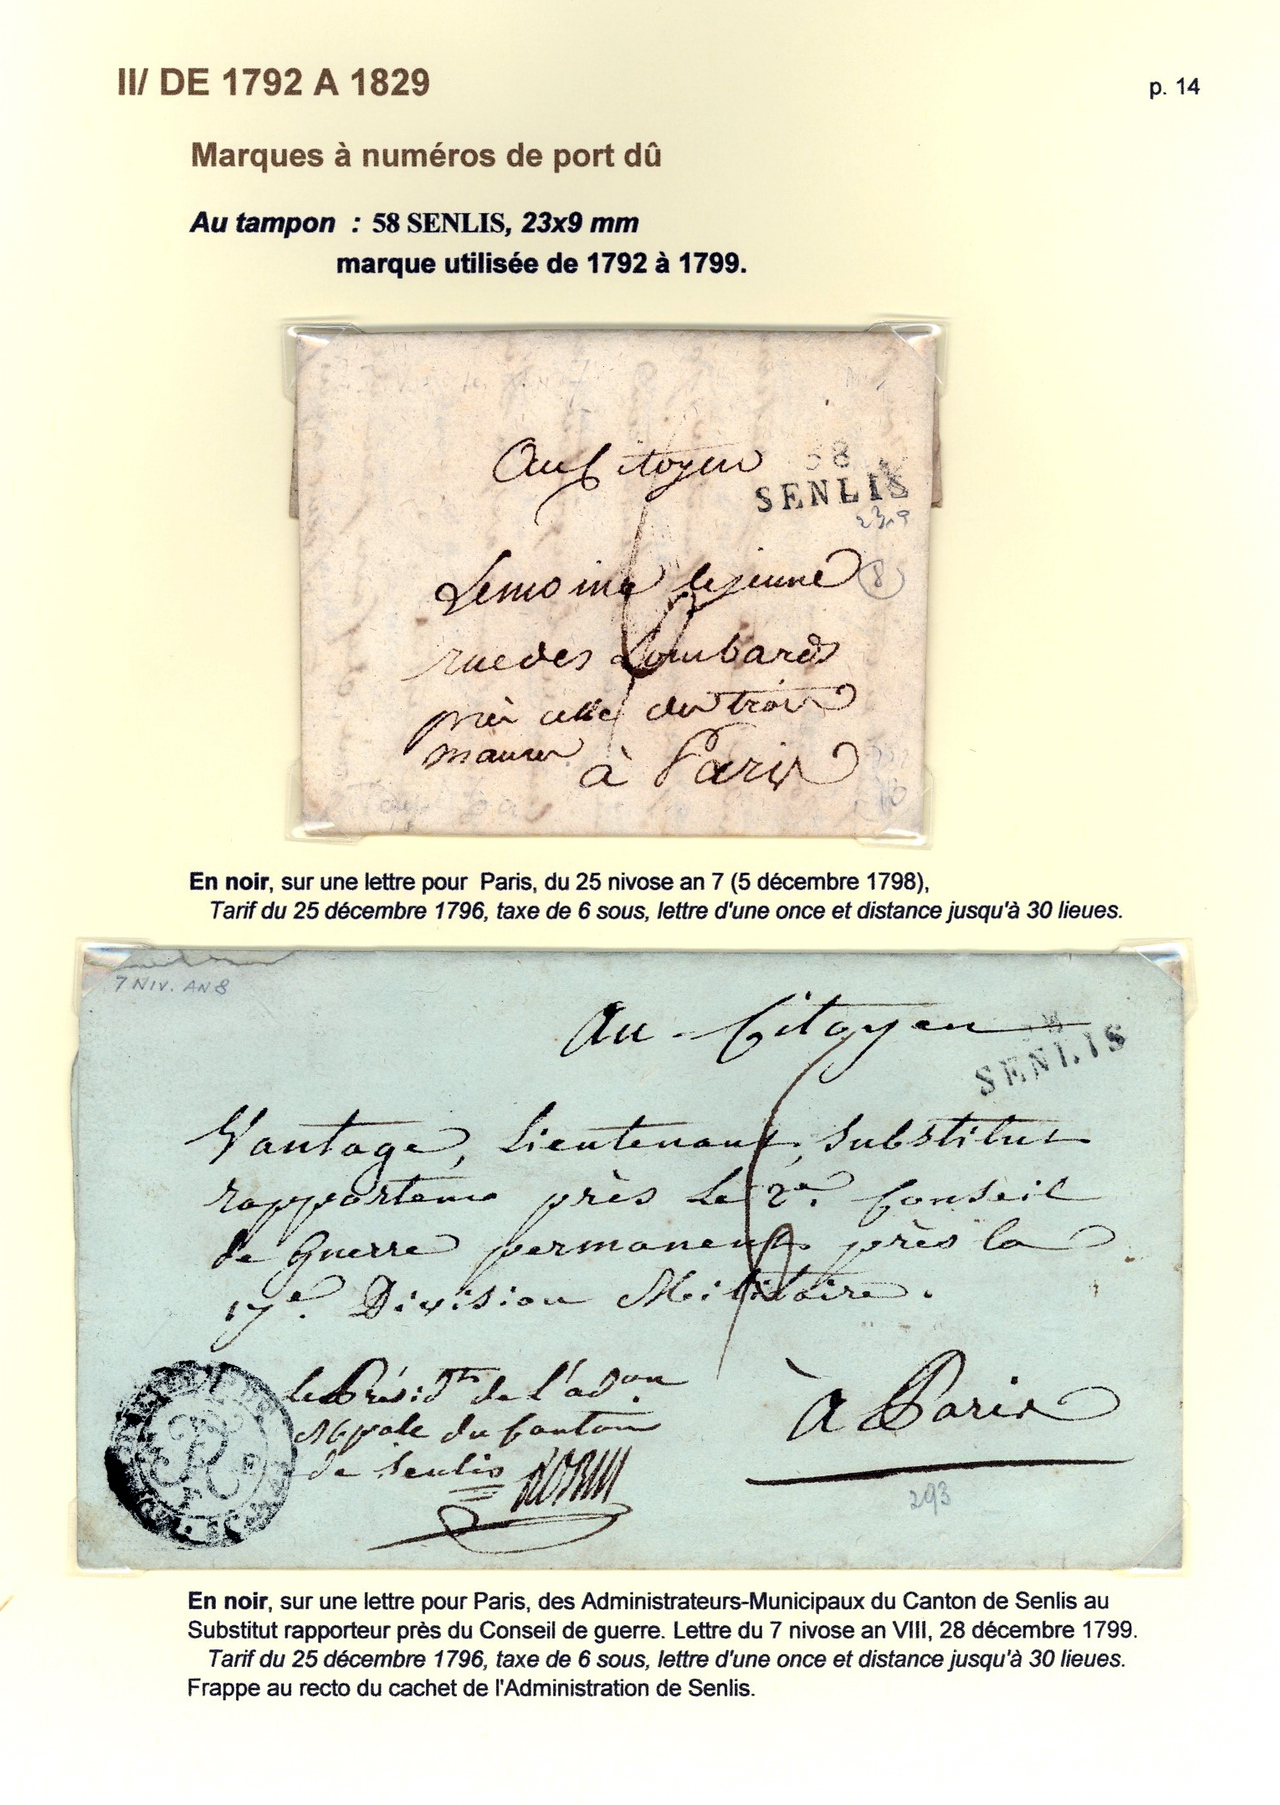 II/ DE 1792 A 1829
p. 14
Marques à numéros de port dû
Au tampon : 58 SENLIS, 23x9 mm
marque utilisée de 1792 à 1799.
Au Citoyen
58
SENLIS
23.9
Lemoine lejeune
8
rue des Lombards
près celle des trois
maures
à Paris
En noir, sur une lettre pour Paris, du 25 nivose an 7 (5 décembre 1798),
Tarif du 25 décembre 1796, taxe de 6 sous, lettre d'une once et distance jusqu'à 30 lieues.
7 NIV. AN 8
Au Citoyen
SENLIS
Vantage, Lieutenant, Substitut
rapporteur près le 2e. Conseil
de Guerre permanent près la
17e. Division Militaire.
le Présidt. de l'adon
Mpale du Canton
de Senlis
à Paris
293
En noir, sur une lettre pour Paris, des Administrateurs-Municipaux du Canton de Senlis au
Substitut rapporteur près du Conseil de guerre. Lettre du 7 nivose an VIII, 28 décembre 1799.
Tarif du 25 décembre 1796, taxe de 6 sous, lettre d'une once et distance jusqu'à 30 lieues.
Frappe au recto du cachet de l'Administration de Senlis.